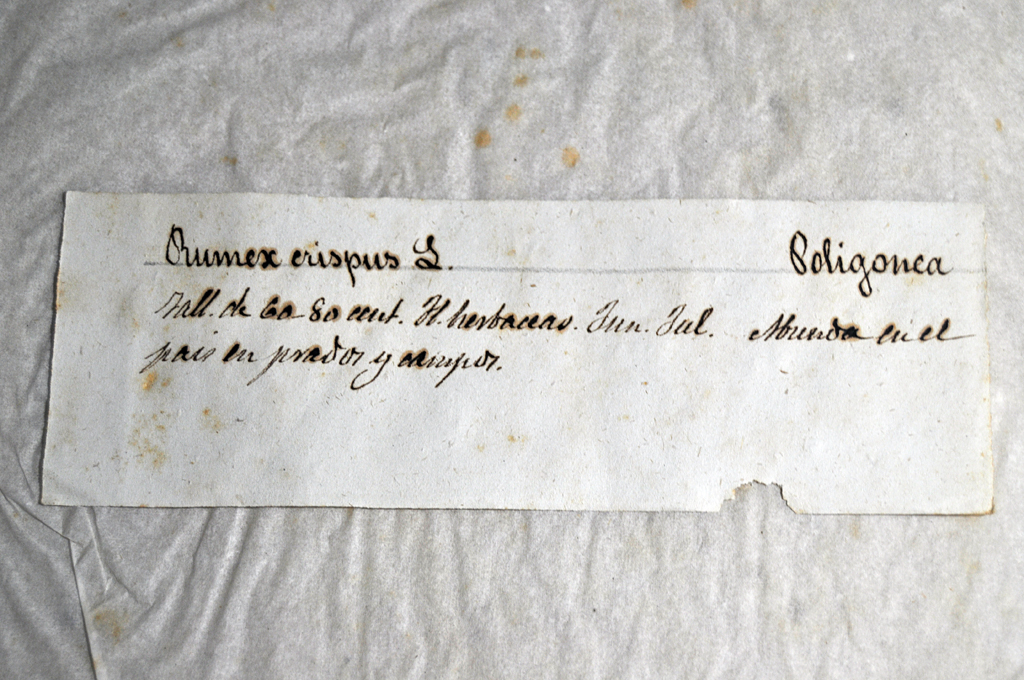 Rumex crispus L. Poligonea
Tall. de 60 80 cent. Fl. herbaceas. Jun. Jul. Abunda en el
pais en prados y campos.